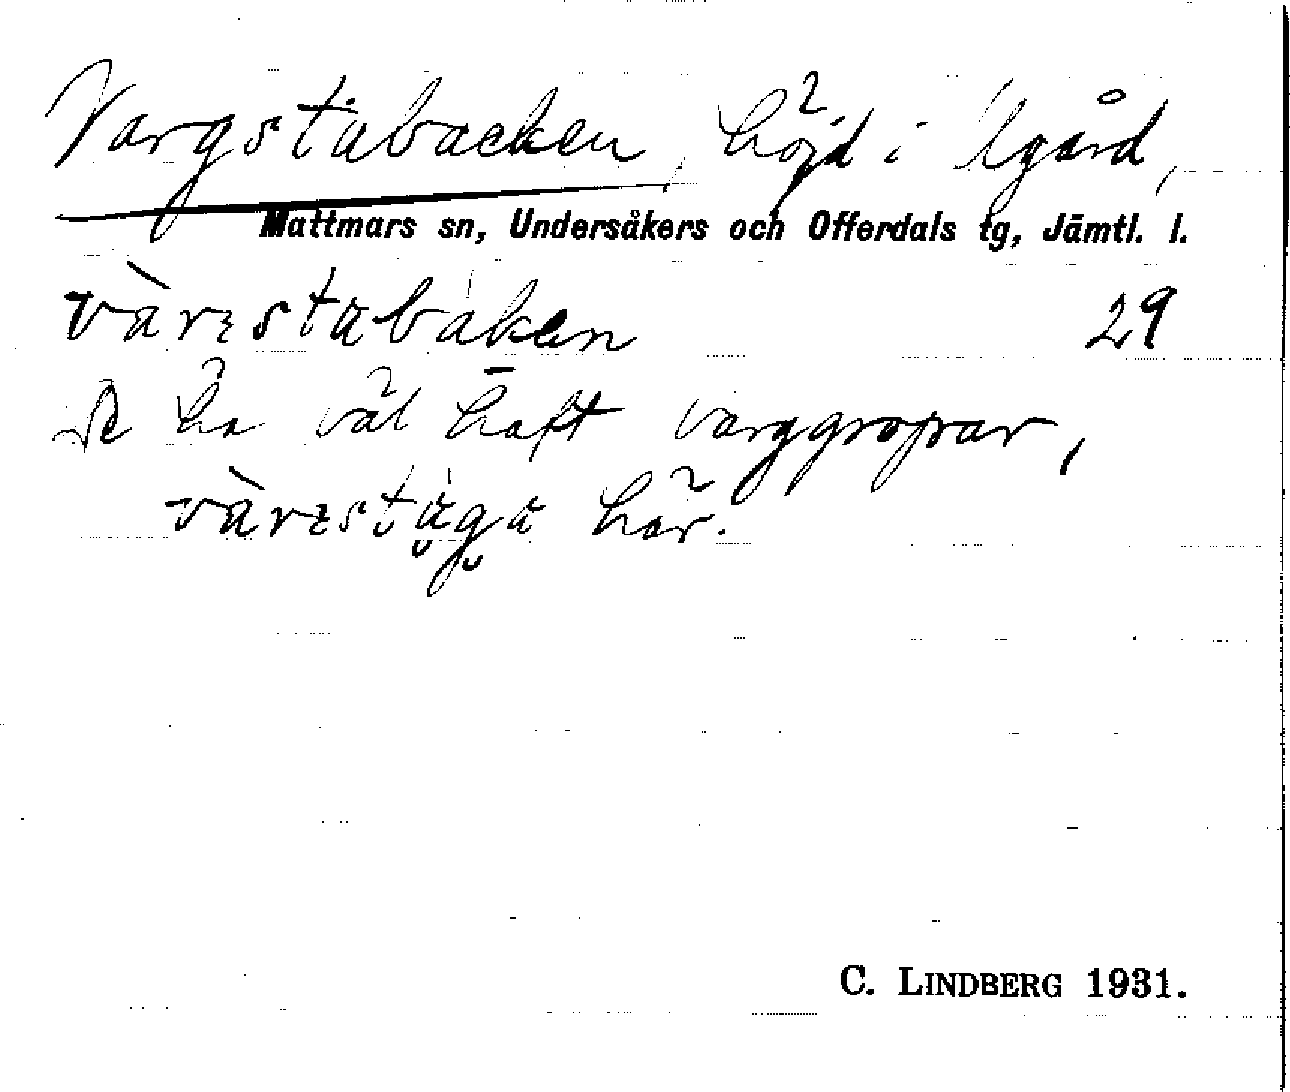 Vargstubacken, höjd i Ugård,
Mattmars sn, Undersåkers och Offerdals tg, Jämtl. l.
vàrɛstubakən 29
De ha väl haft varggropar,
vàrɛstugu här.
C. LINDBERG 1931.